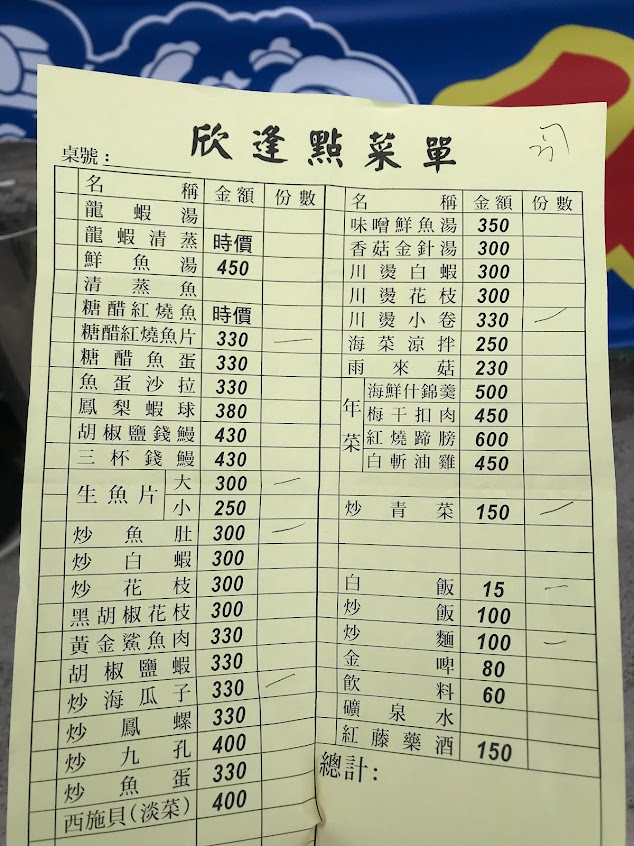 欣逢點菜單
桌號:
名稱 金額 份數
龍蝦湯
龍蝦清蒸 時價
鮮魚湯 450
清蒸魚
糖醋紅燒魚 時價
糖醋紅燒魚片 330 一
糖醋魚蛋 330
魚蛋沙拉 330
鳳梨蝦球 380
胡椒鹽錢鰻 430
三杯錢鰻 430
生魚片 大 300 一
小 250
炒魚肚 300 一
炒白蝦 300
炒花枝 300
黑胡椒花枝 300
黃金鯊魚肉 330
胡椒鹽蝦 330
炒海瓜子 330 一
炒鳳螺 330
炒九孔 400
炒魚蛋 330
西施貝(淡菜) 400
名稱 金額 份數
味噌鮮魚湯 350
香菇金針湯 300
川燙白蝦 300
川燙花枝 300
川燙小卷 330 一
海菜涼拌 250
雨來菇 230
年菜
海鮮什錦羹 500
梅干扣肉 450
紅燒蹄膀 600
白斬油雞 450
炒青菜 150 一
白飯 15 一
炒飯 100
炒麵 100 一
金啤 80
飲料 60
礦泉水
紅藤藥酒 150
總計: